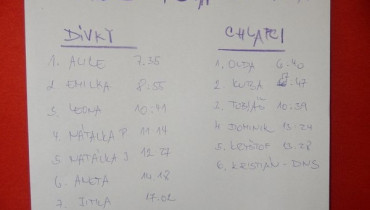 DÍVKY
1. ALICE 7.38
2. EMILKA 8.55
3. 10.41
4. NATÁLKA P. 11.14
5 NATÁLKA J 12.27
6. ANETA 14.18
7. JITKA 17.02
CHLAPCI
1. OLDA 6.40
2 KUBA
3. TOBIÁŠ 10.39
4. DOMINIK 13.24
5. KRYŠTOF 13.28
6. KRISTIÁN - DNS